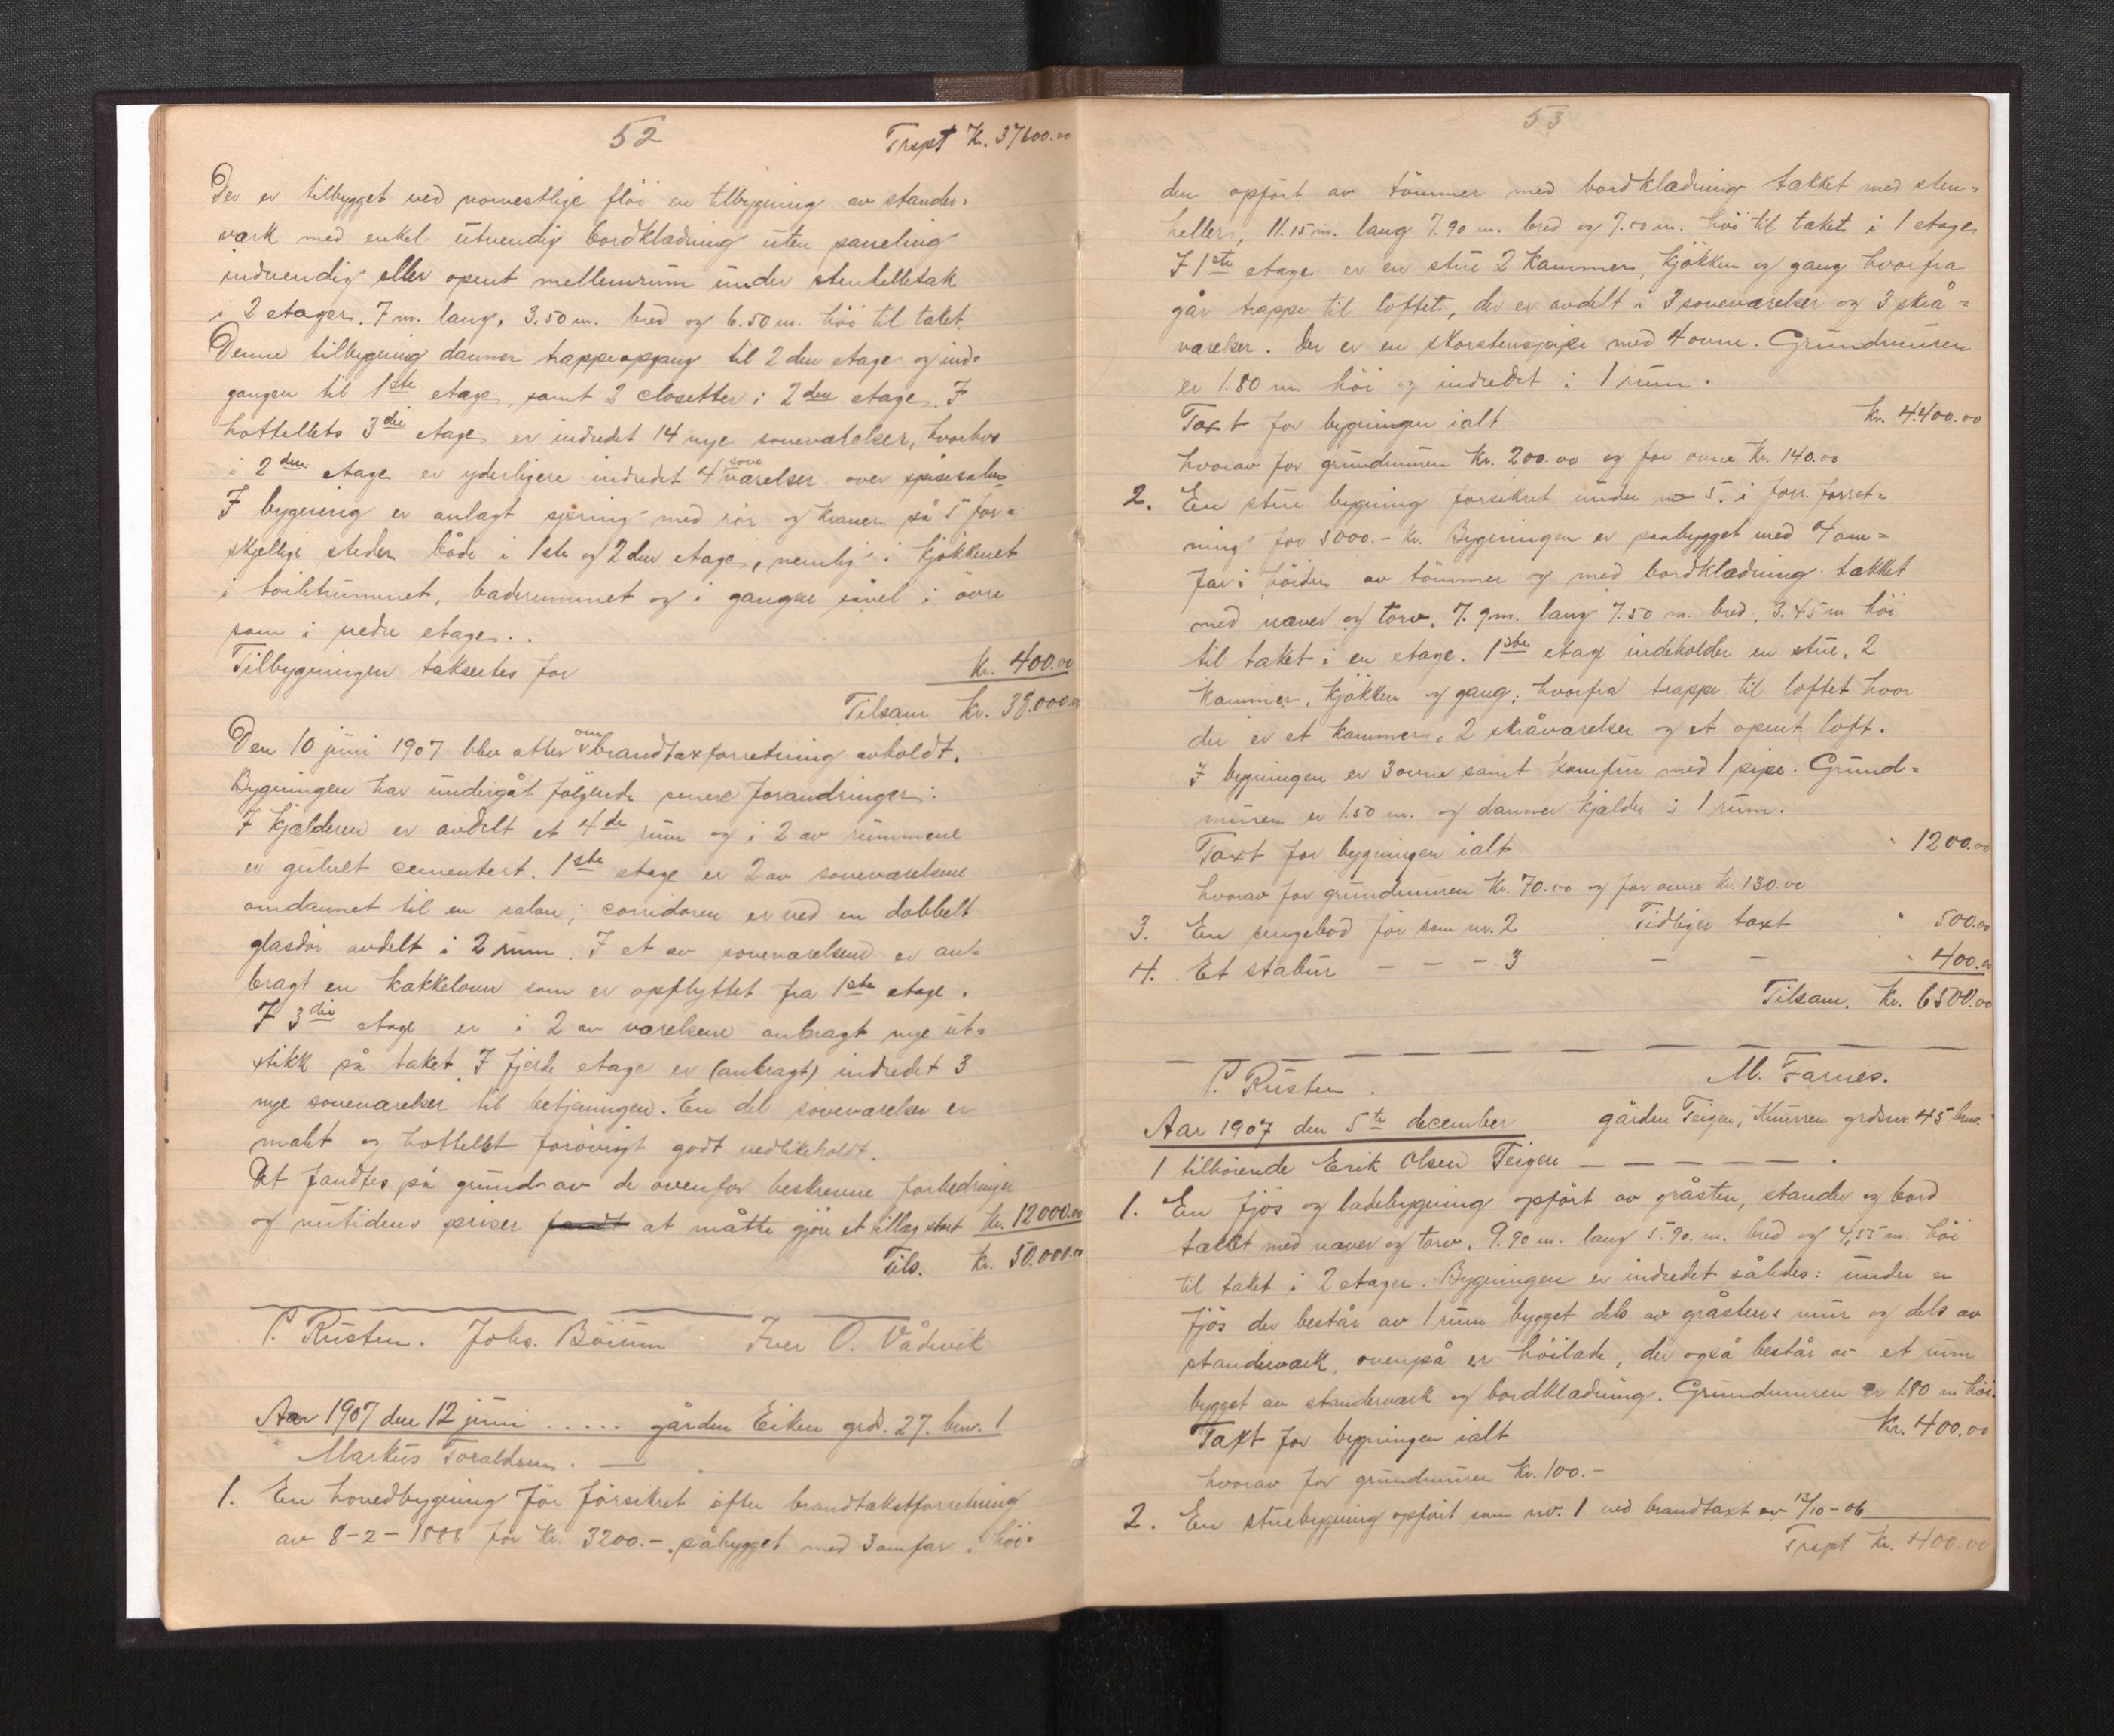 52
Trspt Kr. 37600.00
Der er tilbygget ved norvestlige flöi en tilbygning av stander=
værk med enkel utvendig bordklædning uten paneling
indvendig eller opent mellemrum under stenhelletak
i 2 etager. 7 m. lang, 3.50 m. bred og 6.50 m. höi til taket.
Denne tilbygning danner trappeopgang til 2den etage og ind=
gangen til 1ste etage, samt 2 closetter i 2den etage. I
hottellets 3die etage er indredet 14 nye soveværelser, hvorhos
i 2den etage er yderligere indredet 4 soveværelser over spisesalen
I bygning er anlagt spring med rör og kraner på 5 for=
skjellige steder både i 1ste og 2den etage, nemlig i kjökkenet
i toiletrummet, baderummet og i gangene såvel i övre
som i nedre etage..
Tilbygningen takseres for Kr. 400.00
Tilsam Kr. 38.000.00
Den 10 juni 1907 blev atter ombrandtaxforretning avholdt.
Bygningen har undergåt fölgende senere forandringer:
I kjælderen er avdelt et 4de rum og i 2 av rummene
er gulvet cementert. 1ste etage er 2 av soveværelsene
omdannet til en salon; corridoren er ved en dobbelt
glasdör avdelt i 2 rum. I et av soveværelsene er an=
bragt en kakkelovn som er opflyttet fra 1ste etage.
I 3die etage er i 2 av værelsene anbragt nye ut=
stikk på taket. I fjerde etage er (anbragt) indredet 3
nye soveværelser til betjeningen. En del soveværelser er
malt og hottellet forövrigt godt vedlikeholdt.
Det fandtes på grund av de ovenfor beskrevne forbedringer
og nutidens priser fandt at måtte gjöre et tillæg stort Kr. 12000.00
Tils. Kr. 50.000.00
P. Rusten. Johs. Böium Iver O. Vådevik
Aar 1907 den 12 juni ..... gården Eiken grd. 27. bnr. 1
Markus Toraldsen. —
1. En hovedbygning för forsikret efter brandtakstforretning
av 8-2-1888 for Kr. 3200.-. påbygget med 3 omfar i höi=
53
den opfört av tömmer med bordklædning takket med sten=
heller, 11.15 m. lang 7.90 m. bred og 7.50 m. höi til taket i 1 etage
I 1ste etage er en stue 2 kammer, kjökken og gang hvorfra
går trappe til loftet, der er avdelt i 3 soveværelser og 3 skrå=
værelser. Der er en skorstenspipe med 4 ovne. Grundmuren
er 1.80 m. höi og indredet i 1 rum.
Taxt for bygningen ialt Kr. 4.400.00
hvorav for grundmuren Kr. 200.00 og for ovne Kr. 140.00
2. En stue bygning forsikret under no 5. i forr. forret=
ning for 5000.- Kr. Bygningen er paabygget med 4 om=
far i höiden av tömmer og med bordklædning takket
med næver og torv. 7.9 m. lang 7.50 m. bred, 3.45 m höi
til taket i en etage. 1ste etage indeholder en stue, 2
kammer, kjökken og gang; hvorfra trappe til loftet hvor
der er et kammer, 2 skråværelser og et opent loft.
I bygningen er 3 ovne samt komfur med 1 pipe. Grund=
muren er 1.50 m. og danner kjælder i 1 rum.
Taxt for bygningen ialt " 1200.00
hvorav for grundmuren Kr. 70.00 og for ovne Kr. 130.00
3. En sengebod för som nr. 2 Tidliger taxt " 500.00
4. Et stabur - - - 3 - - " 400.00
Tilsam. Kr. 6500.00
P. Rusten. M. Farnes.
Aar 1907 den 5te december gården Teigen, Murren grdsnr. 45 bnr.
1 tilhörende Erik Olsen Teigen — — — — — .
1. En fjös og ladebygning opfört av gråsten, stander og bord
takket med næver og torv. 9.90 m. lang 5.90. m. bred og 4,55 m. höi
til taket i 2 etager. Bygningen er indredet således: under er
fjös der består av 1 rum bygget dels av gråstens mur og dels av
standerværk, ovenpå er höilade, der også består av et rum
bygget av standerværk og bordklædning. Grundmuren er 1.80 m höi.
Taxt for bygningen ialt Kr. 400.00
hvorav for grundmuren Kr. 100.-
2. En stuebygning opfört som nr. 1 ved brandtaxt av 12/10-06
Trspt Kr. 400.00